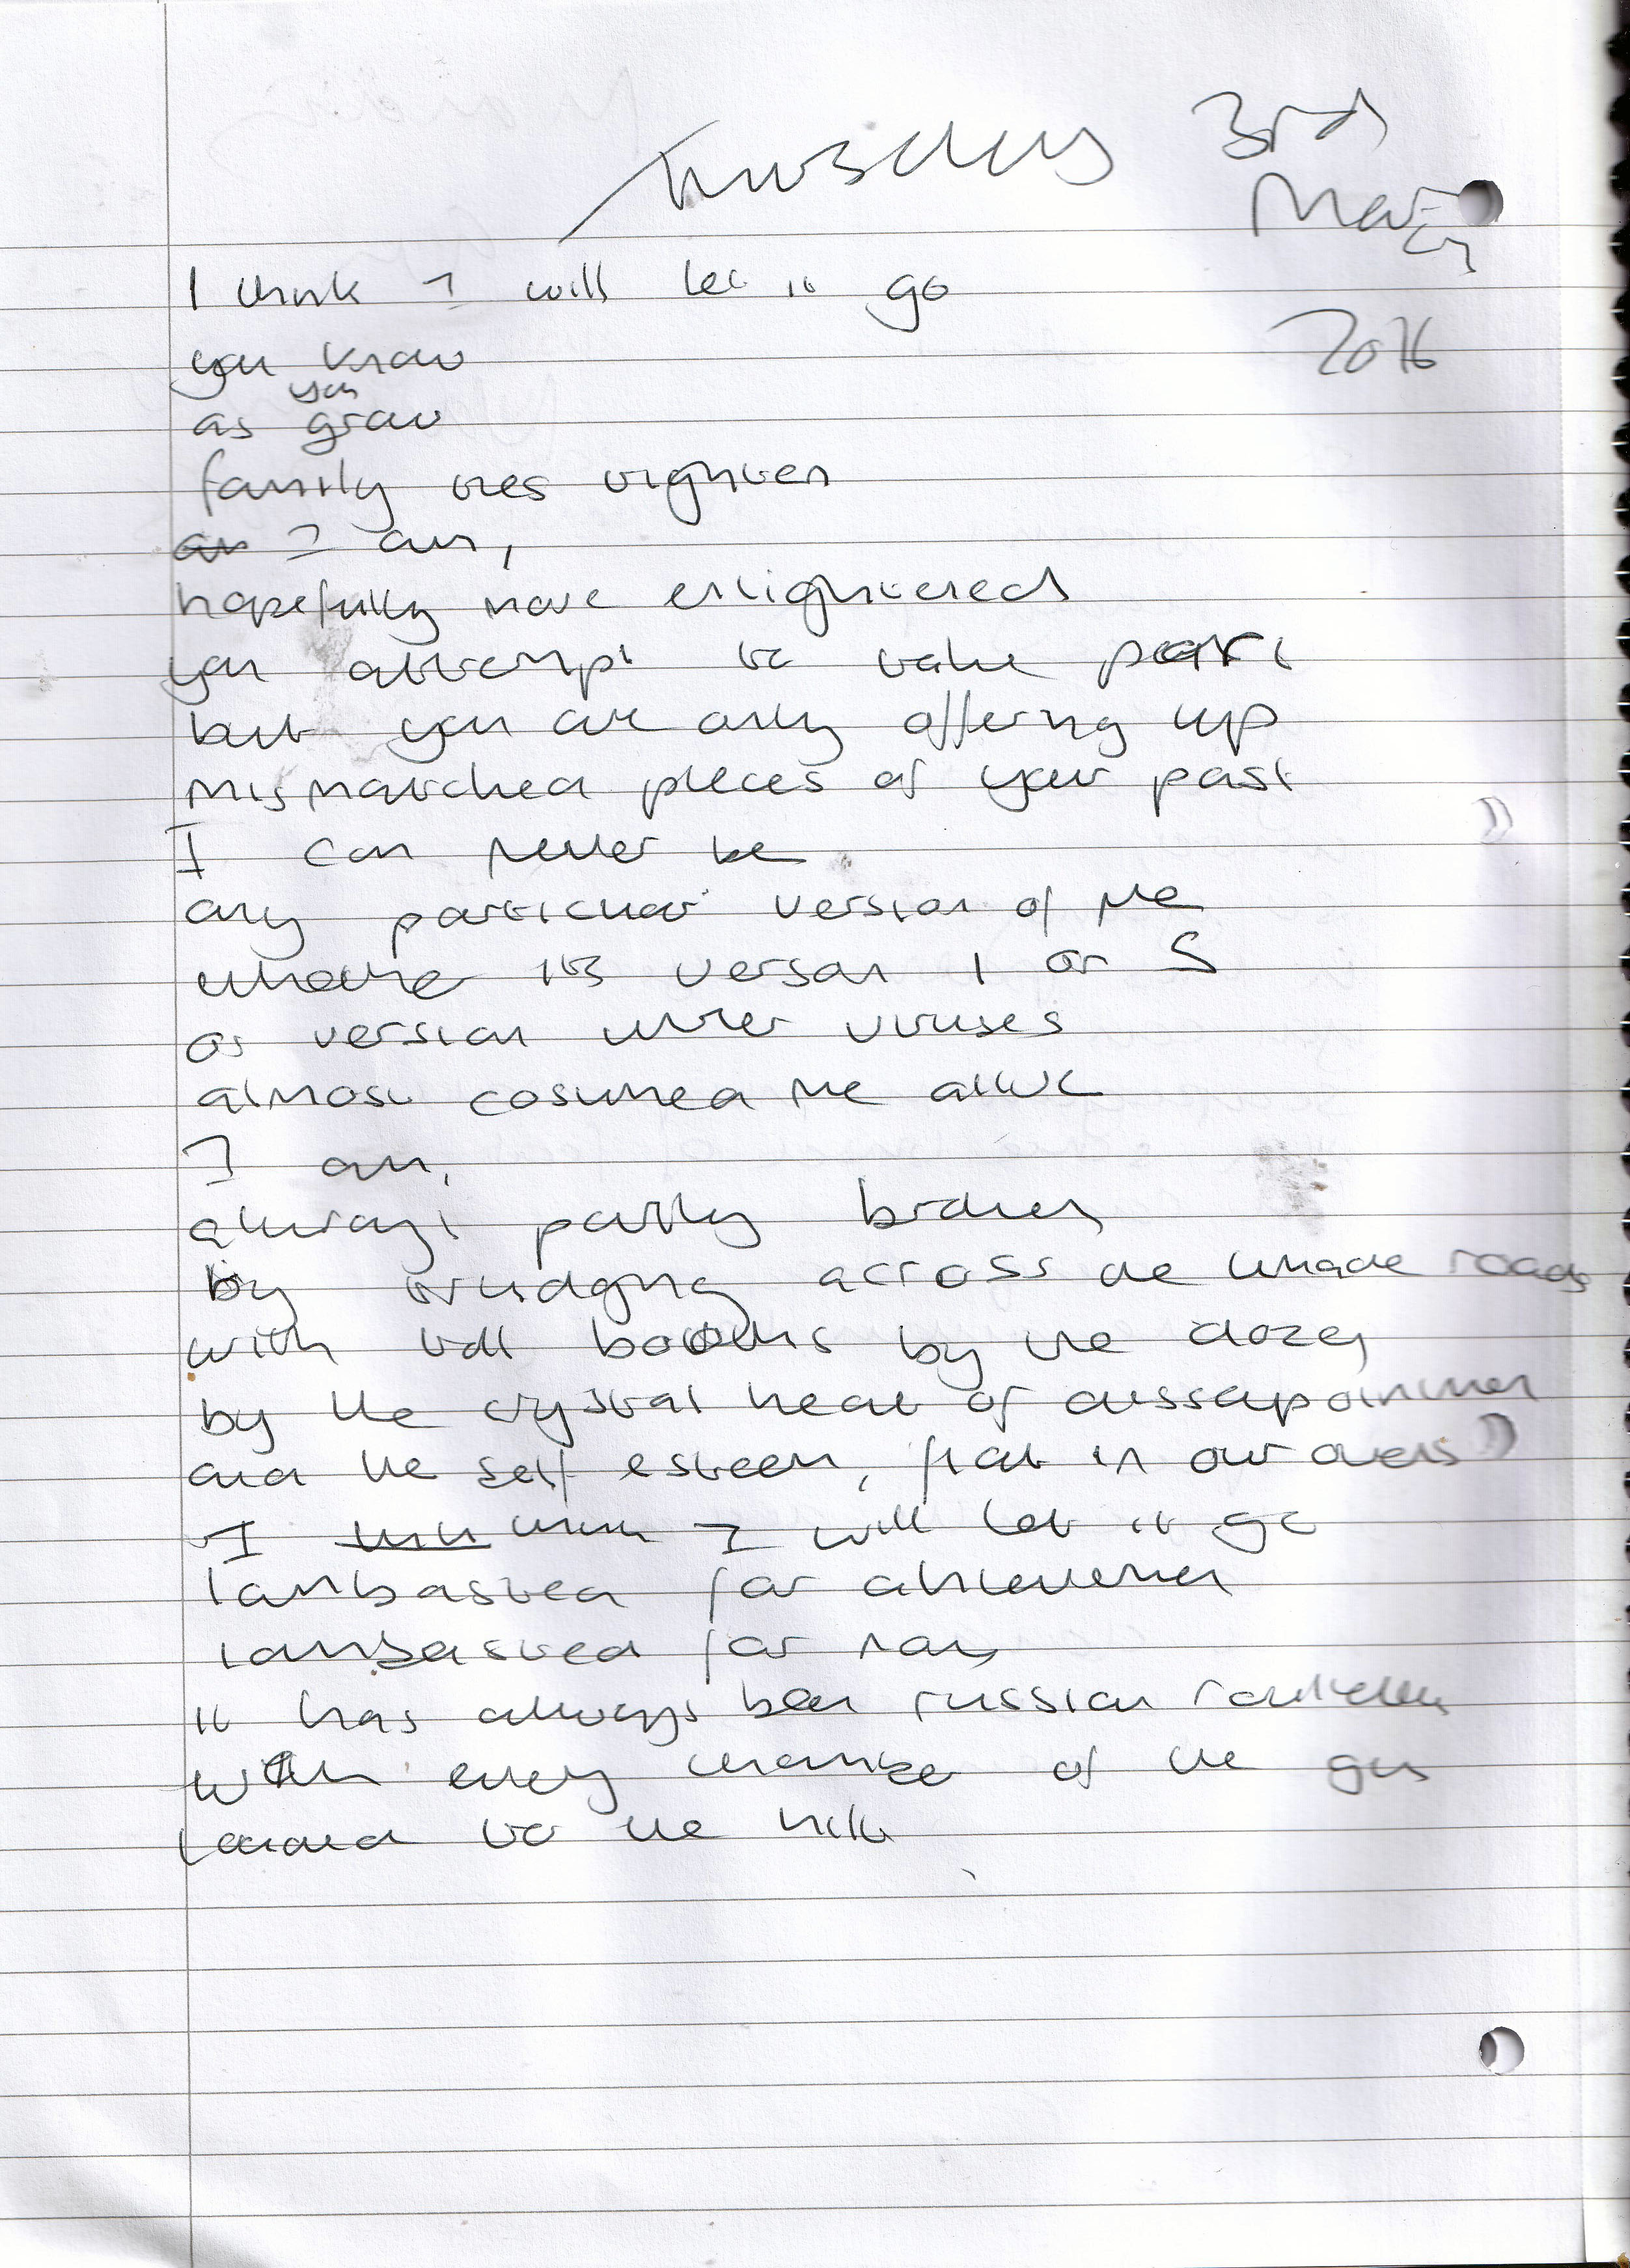 Thursday 3rd
March
2016
I think I will let it go
you know
as you grow
family ties tighten
I am,
hopefully more enlightened
you attempt to take part
but you are only offering up
mismatched pieces of your past
I can never be
any particular version of me
whether its version 1 or 5
or version where viruses
almost cosumed me alive
I am,
always partly broken
by trudging across the unmade roads
with toll booths by the dozen
by the crystal heat of dissapointment
and the self esteem, float in our ovens
I think I will let it go
lambasted for achievement
lambasted for non
it has always been russian roulette
with every chamber of the gun
loaded to the hilt